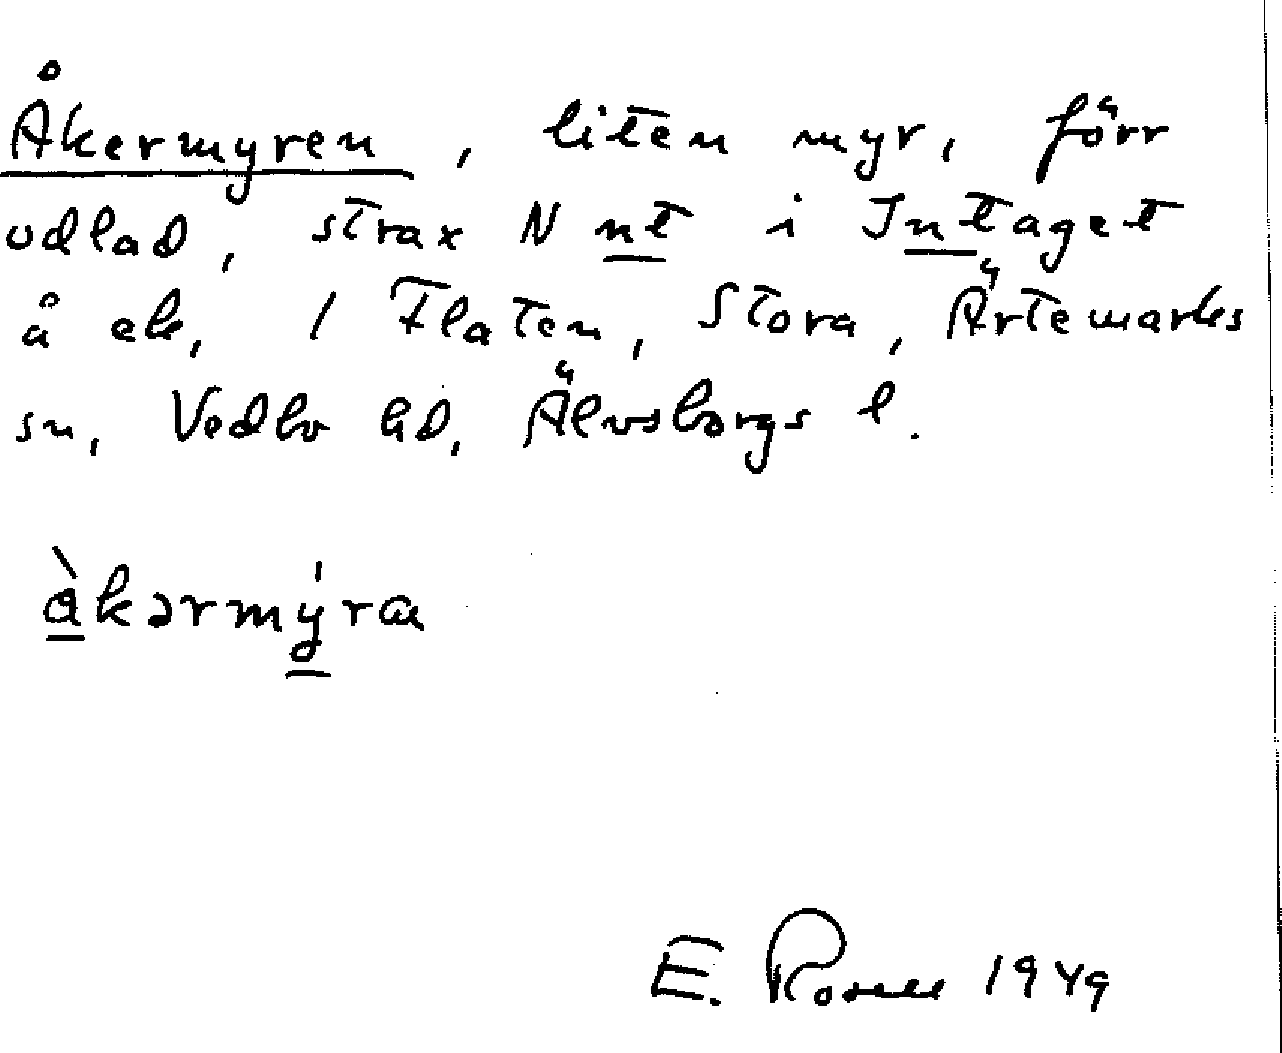 Åkermyren, liten myr, förr
odlad, strax N nt i Intaget
å ek, 1 Flaten, Stora, Ärtemarks
sn, Vedbo hd, Älvsborgs l.
àkərmýra
E. Rosell 1949